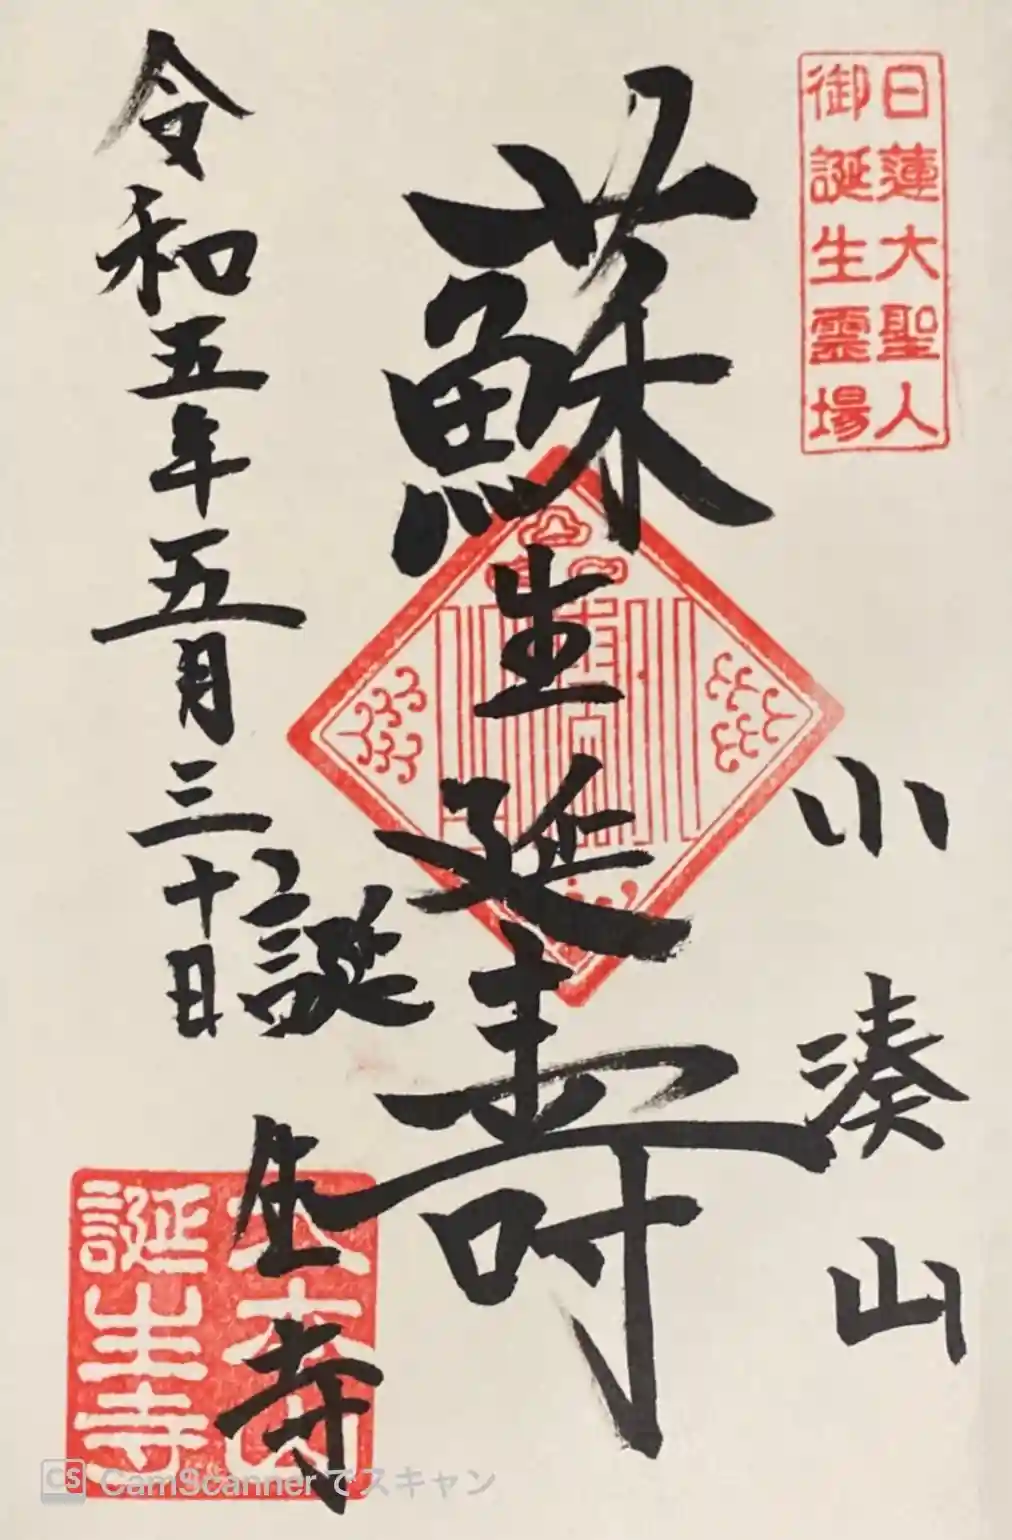 日蓮大聖人
御誕生霊場
小湊山
蘇生延寿
令和五年五月三十日
誕生寺
大本山
誕生寺
CS CamScannerでスキャン